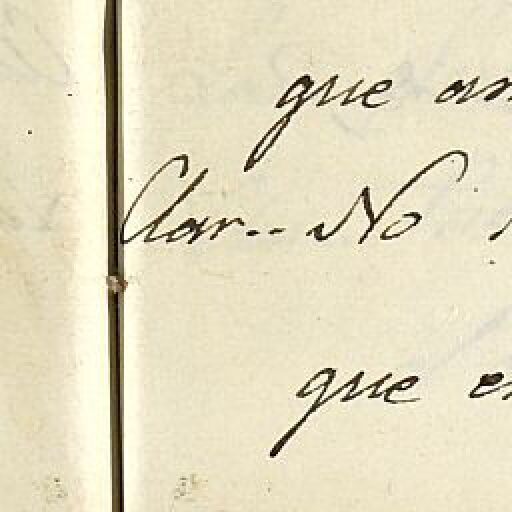 que
Clar.. No
que